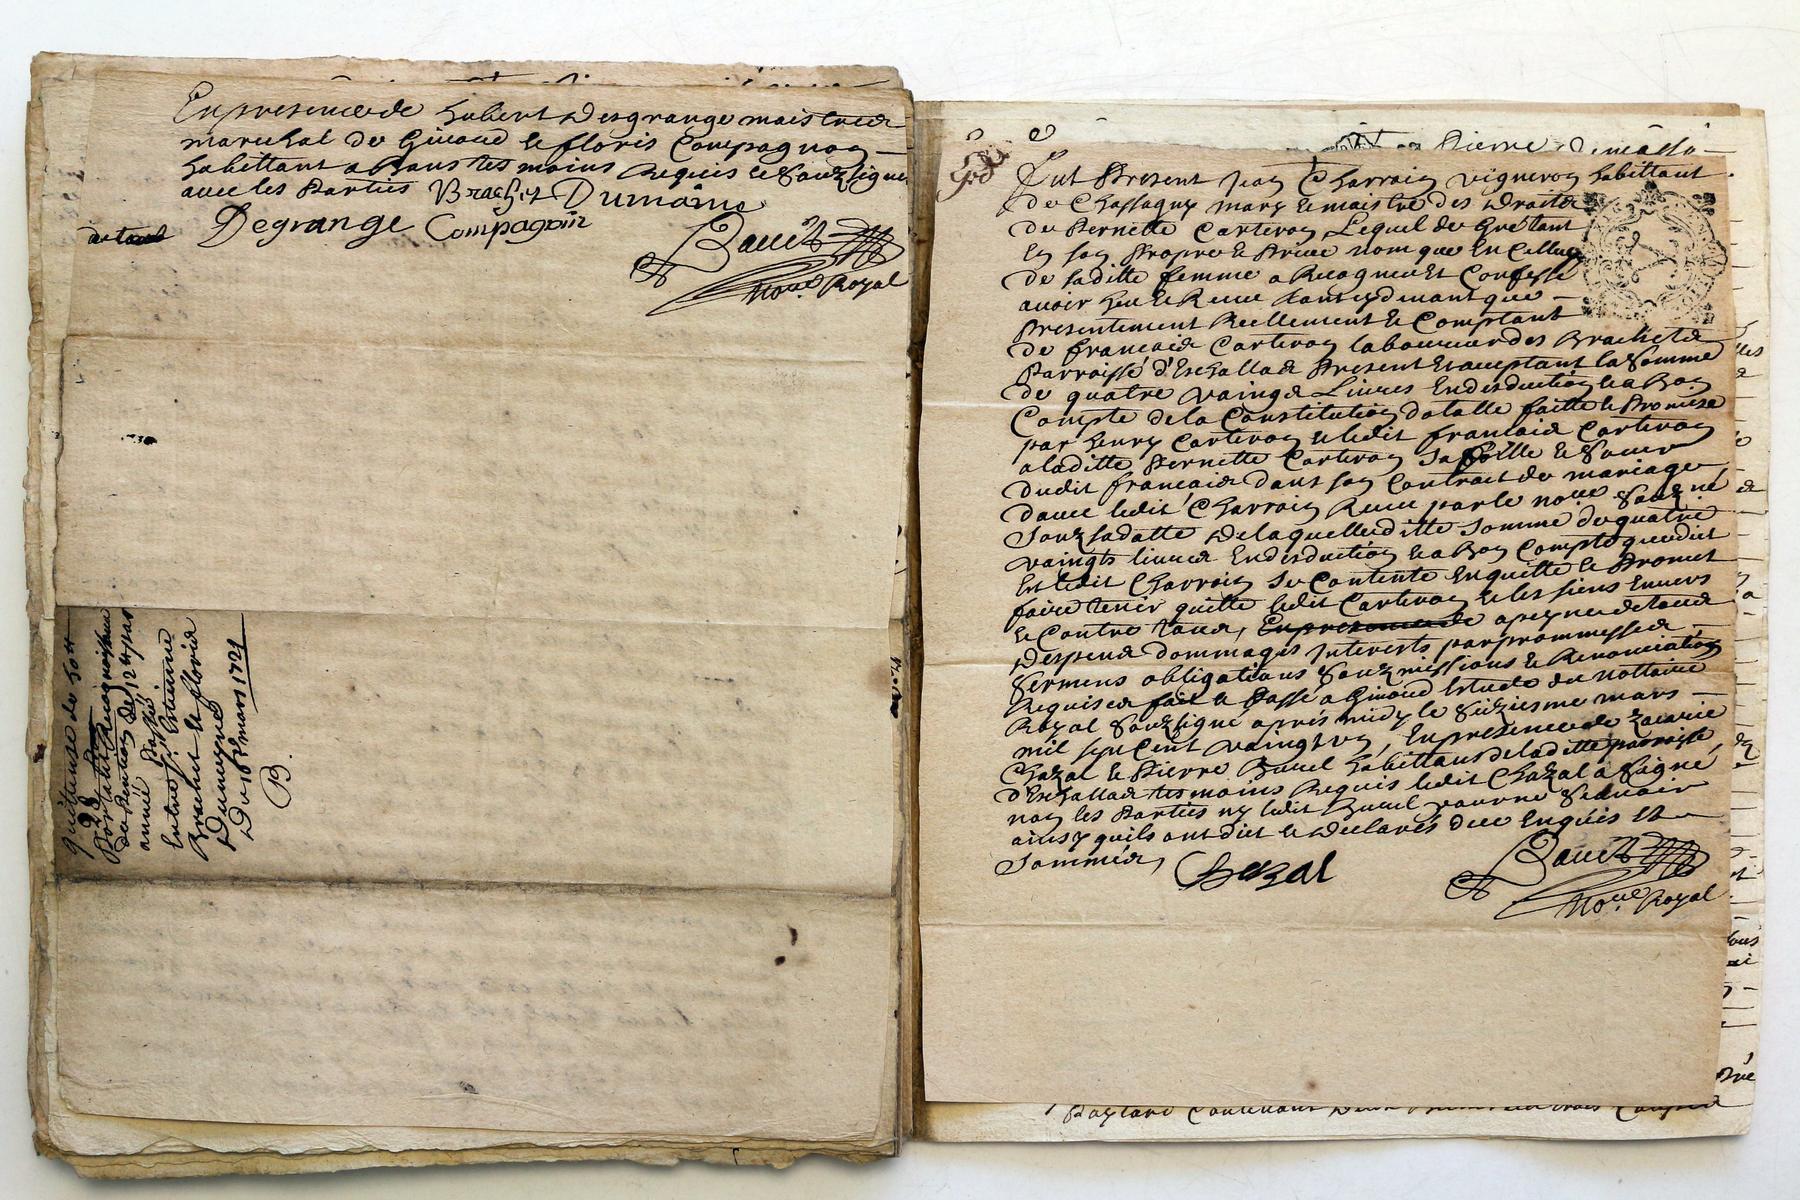 En presence de hubert Desgrange maistre
mareschal de Givord et floris Compagnon
habittant a Bans tesmoins Requis et Souzsignes
avec les Parties Brachet Dumaine
Degrange Compagoin
Bauet
No.re Royal
quittance de 50
28
de Pention de
année Passé
Entre sr. Estienne
Brachet et floris
Dumayne
Du 16e mars 1721
B.
Fut Present Jean Charroin vigneron habittant
de Chassagny mary et maistre des Droits
de Pernette Carteron Lequel de Gré tant
En son Propre et Privé nom que En Celluy
de laditte femme a Recogneu Et Confessé
avoir heu et Receu tant cy devant que
Presentement Reellement et Comptant
de francois Carteron laboureur des Brachet
Parroisse d'Eschallas Present Et acceptant la Somme
de quatre vaingts Livres En desduction et a Bon
Compte de la Constitution dotalle faitte et Promise
par henry Carteron et ledit francois Carteron
a laditte Pernette Carteron sa fille et Soeur
dudit francois dans son Contrat de mariage
davec ledit Charroin Receu par le no.re Souzsigné
Souz sa datte De laquelle ditte Somme de quatre
vaingts livres En desduction et a Bon Compte que dict
Est ledit Charroin se Contente En quitte et Promet
faire tenir quitte ledit Carteron et les siens Envers
et Contre tous, En presence de a peyne de tous
Despens dommages Interests par prommesses
Sermens obligations Souzmissions et Renonciations
Requises fait et Passé a Givord Estude du nottaire
Royal Souzsigné aprés midy le Siziesme mars
mil sept Cent vaingt un, En presence de zacarie
Chazal et Pierre Buuel habittans de laditte parroisse
d'Eschallas tesmoins Requis ledit Chazal a Signé
non les Parties ny ledit Buuel pour ne Scavoir
ainsy quils ont dict et Declarés de ce Enquis Et
Sommés, Chazal
Bauet
No.re Royal